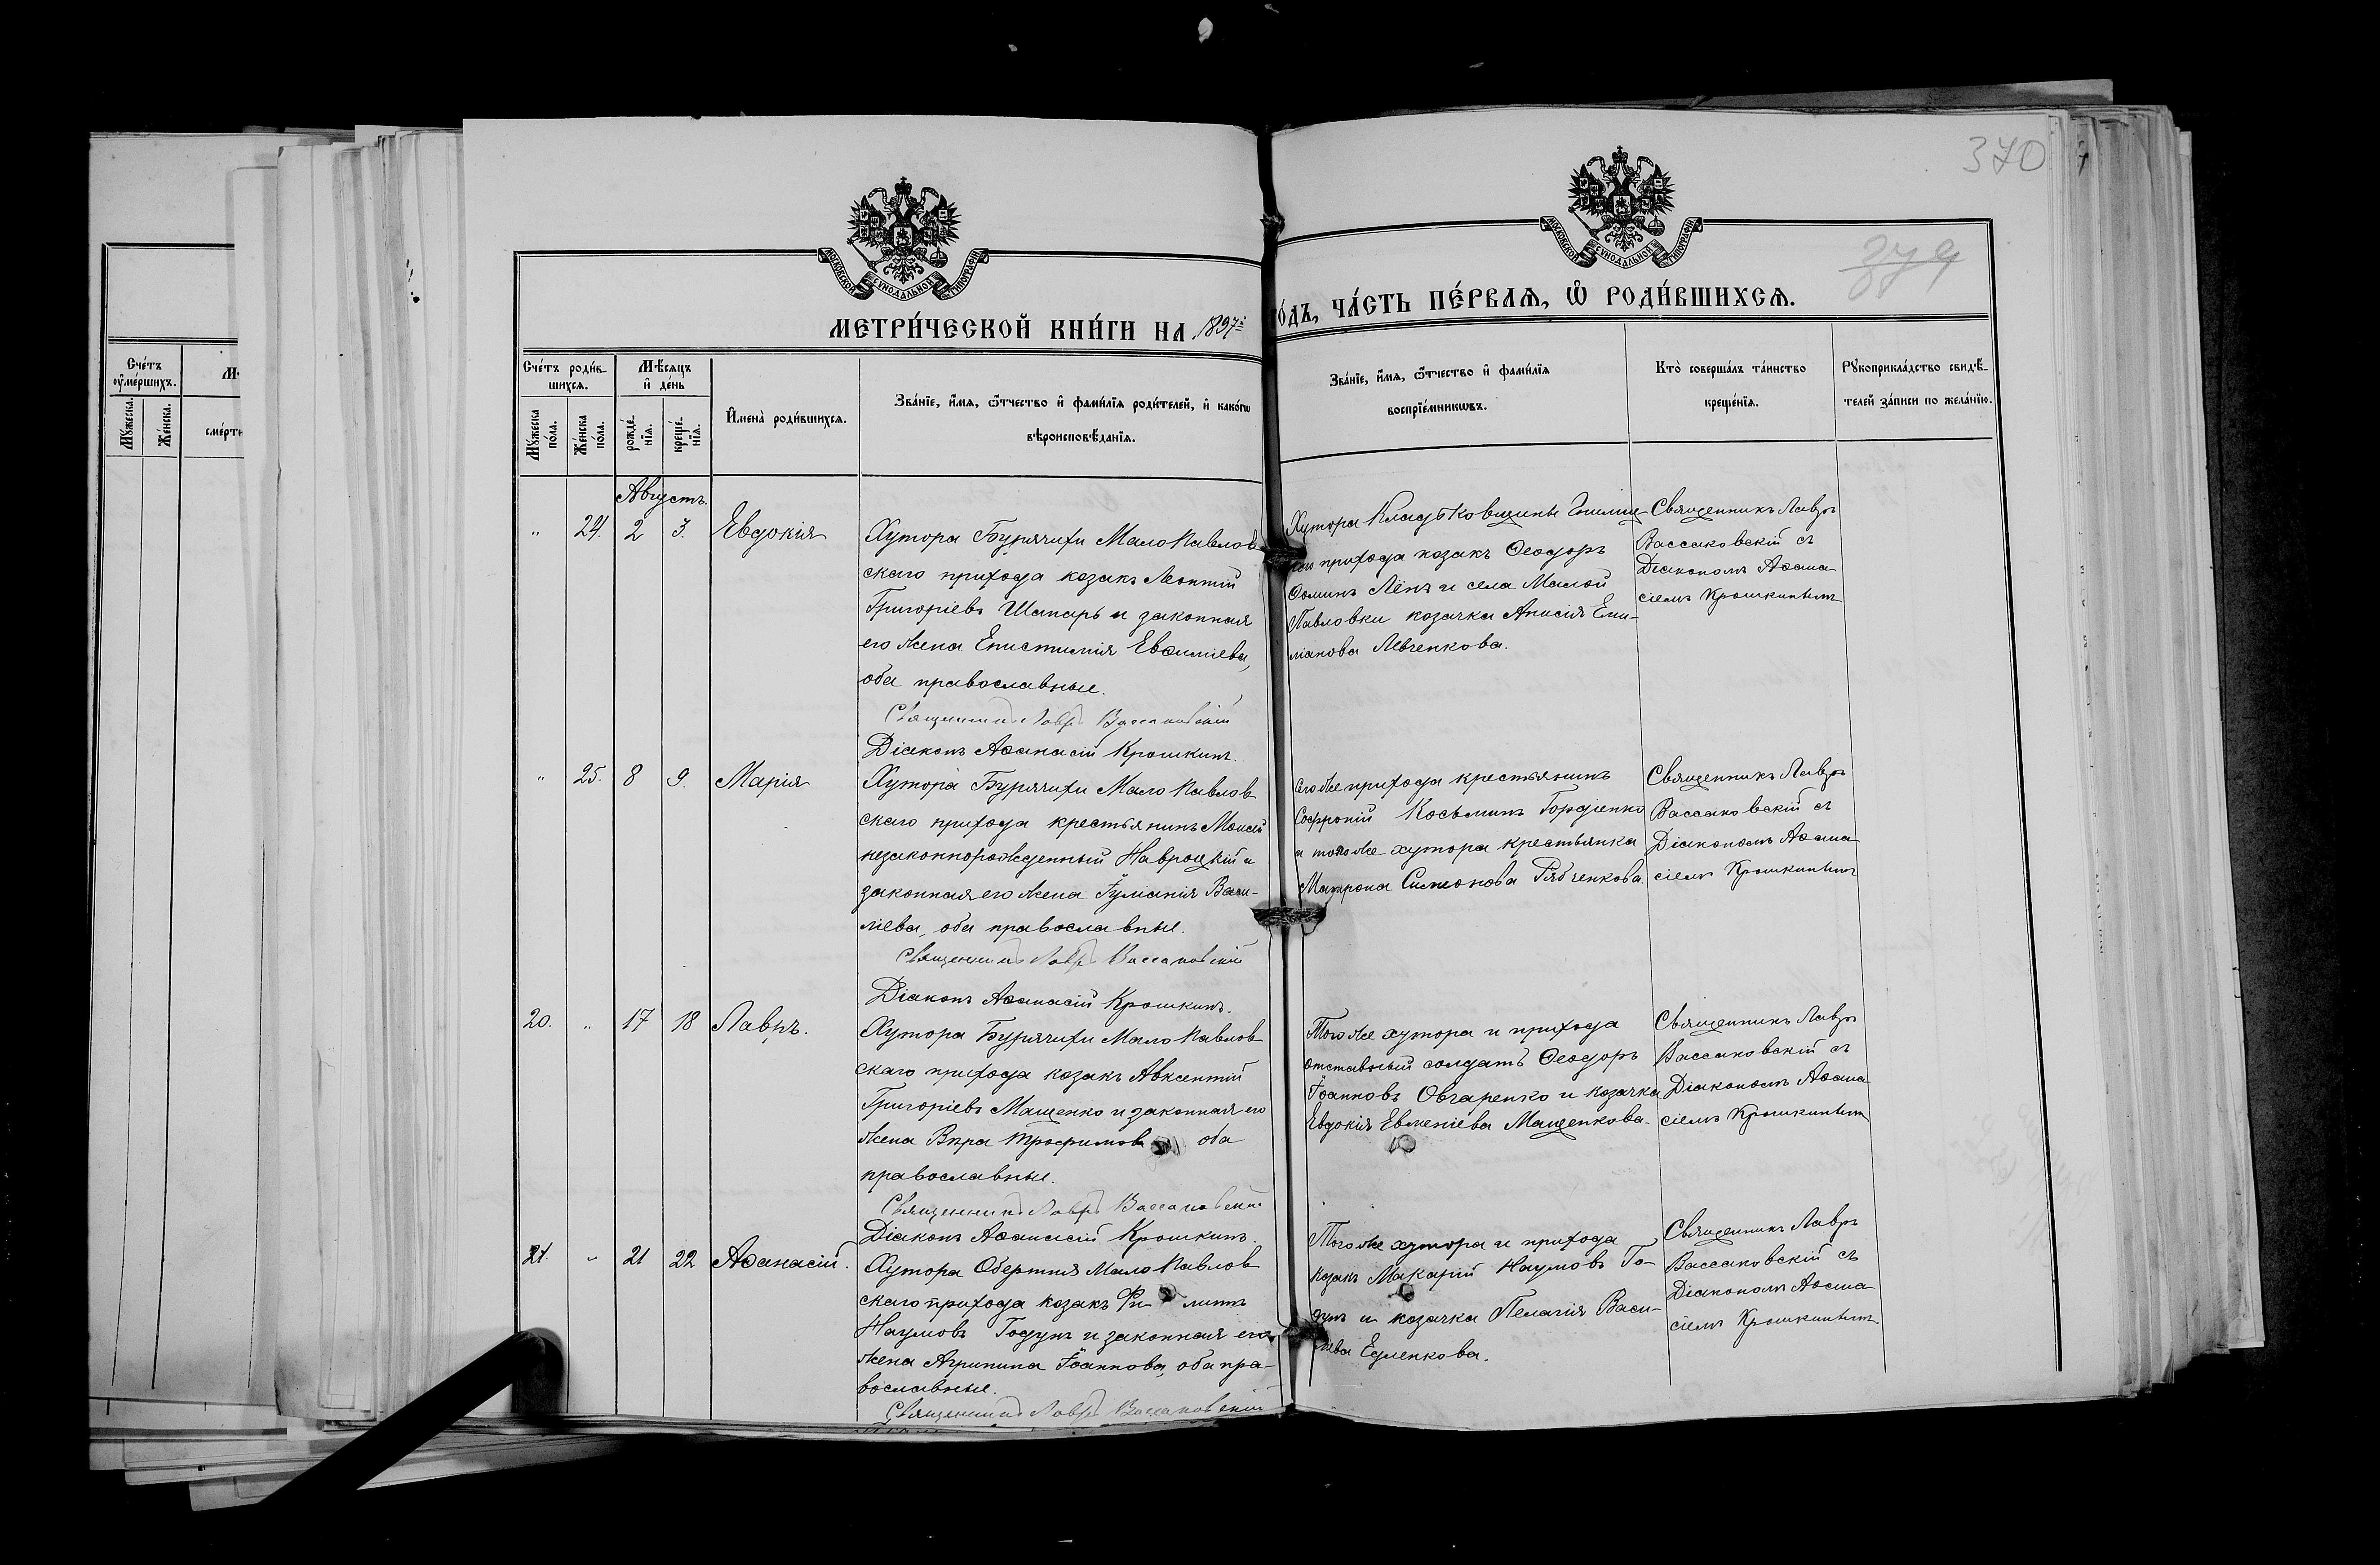 370
379
МОСКОВСКОЙ СѴНОДАЛЬНОЙ ТИПОГРАФІИ
МОСКОВСКОЙ СѴНОДАЛЬНОЙ ТИПОГРАФІИ
МЕТРИ́ЧЕСКОЙ КНИ́ГИ НА 1897й
О́ДЪ, ЧА́СТЬ ПЕ́РВАЯ, Ѡ РОДИ́ВШИХСЯ.
Сче́тъ ᲂу҆ме́ршихъ.
Мꙋ́жеска.
Же́нска.
сме́рти
Сче́тъ роди́в-
шихся.
Мѣ́сяцъ
и҆ де́нь
Мꙋ́жеска по́ла.
Же́нска по́ла.
рожде́-
нїя.
креще́-
нїя.
И҆мена̀ роди́вшихся.
Зва́нїе, и҆́мя, ѻ҆́тчество и҆ фами́лїя роди́телей, и҆ како́гѡ
вѣроисповѣ́данїя.
Зва́нїе, и҆́мя, ѻ҆́тчество и҆ фами́лїя
воспрїе́мникѡвъ.
Кто̀ соверша́лъ та́инство
креще́нїя.
Рꙋкоприкла́дство свидѣ́-
телей за́писи по жела́нїю.
Августъ.
" 24. 2 3. Евдокія
Хутора Бурячихи МалоПавлов
скаго прихода козакъ Леонтій
Григоріевъ Шапарь и законная
его жена Епистимія Евѳиміева,
оба православные.
Священникъ Лавръ Вассаковскій
Діаконъ Аѳанасій Крошкинъ.
Хутора Кладьковщины
прихода козакъ Ѳеодоръ
Ѳоминъ Лёнъ и села Малой
Павловки козачка Анисія Еми-
ліанова Левченкова.
Священникъ Лавръ
Вассаковскій съ
Діакономъ Аѳана
сіемъ Крошкинымъ
" 25. 8 9. Марія
Хутора Бурячихи МалоПавлов
скаго прихода крестьянинъ Моисей
незаконнорожденный Навроцкій и
законная его жена Іуліанія Васи-
ліева, оба православные.
Священникъ Лавръ Вассаковскій
Діаконъ Аѳанасій Крошкинъ.
Сегоже прихода крестьянинъ
Софроній Косьминъ Гордіенко
и тогоже хутора крестьянка
Матрона Симеонова Рябченкова
Священникъ Лавръ
Вассаковскій съ
Діакономъ Аѳана
сіемъ Крошкинымъ
20. " 17 18 Лавръ.
Хутора Бурячихи МалоПавлов
скаго прихода козакъ Авксентій
Григоріевъ Мащенко и законная его
жена Вѣра Трофимова оба
православные.
Священникъ Лавръ Вассаковскій
Діаконъ Аѳанасій Крошкинъ.
Тогоже хутора и прихода
отставный солдатъ Ѳеодоръ
Іоанновъ Овчаренко и козачка
Евдокія Евменіева Мащенкова.
Священникъ Лавръ
Вассаковскій съ
Діакономъ Аѳана
сіемъ Крошкинымъ
21. " 21 22 Аѳанасій.
Хутора Обертня МалоПавлов
скаго прихода козакъ Фи липъ
Наумовъ Годунъ и законная его
жена Агрипина Іоаннова, оба пра-
вославные.
Священникъ Лавръ Вассаковскій
Тогоже хутора и прихода
козакъ Макарій Наумовъ Го-
дунъ и козачка Пелагія Васи-
ліева
Священникъ Лавръ
Вассаковскій съ
Діакономъ Аѳана
сіемъ Крошкинымъ